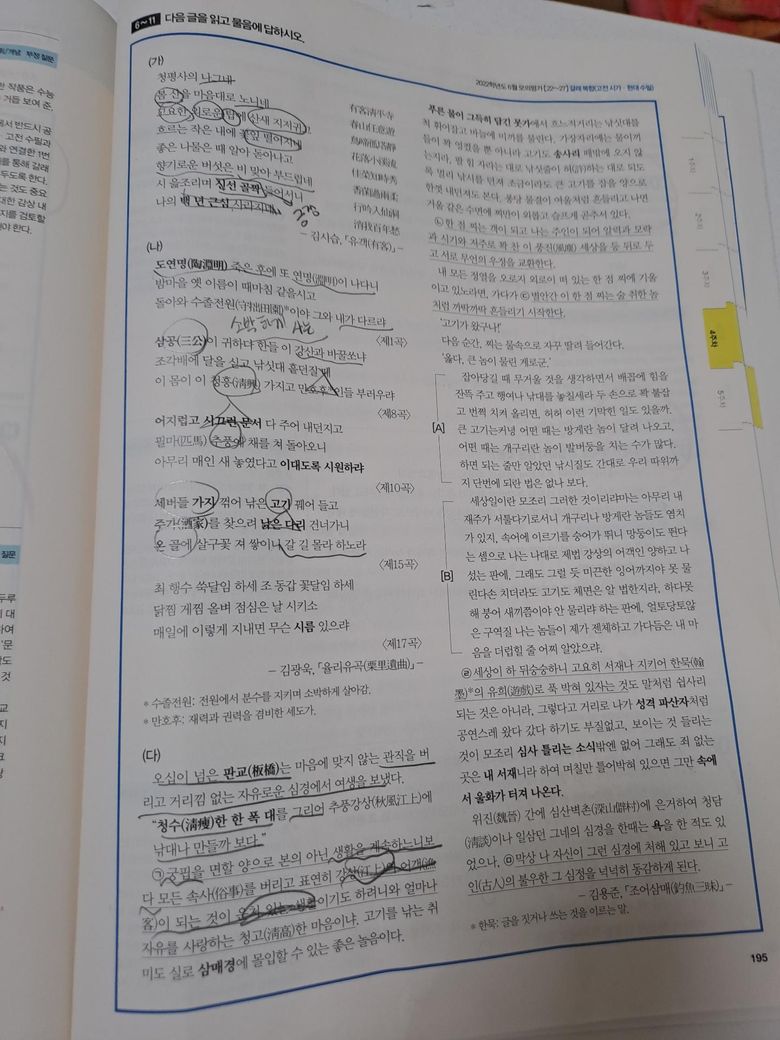 6~11 다음 글을 읽고 물음에 답하시오.
2022학년도 6월 모의평가 [22~27] 갈래 복합(고전 시가·현대 수필)
(가)
청평사의 나그네
봄 산을 마음대로 노니네
고요한 외로운 탑에 산새 지저귀고
흐르는 작은 내에 꽃잎 떨어지네
좋은 나물은 때 알아 돋아나고
향기로운 버섯은 비 맞아 부드럽네
시 읊조리며 신선 골짝 들어서니
나의 백 년 근심 사라지네
有客淸平寺
春山任意遊
鳥啼孤塔靜
花落小溪流
佳菜知時秀
香菌過雨柔
行吟入仙洞
消我百年愁
- 김시습, 「유객(有客)」 -
(나)
도연명(陶淵明) 죽은 후에 또 연명(淵明)이 나다니
밤마을 옛 이름이 때마침 같을시고
돌아와 수졸전원(守拙田園)*이야 그와 내가 다르랴
소박하게 사는
<제1곡>
삼공(三公)이 귀하다 한들 이 강산과 바꿀쏘냐
조각배에 달을 싣고 낚싯대 흩던질 제
이 몸이 이 청흥(淸興) 가지고 만호후*인들 부러우랴
<제8곡>
어지럽고 시끄런 문서 다 주어 내던지고
필마(匹馬) 추풍에 채를 쳐 돌아오니
아무리 매인 새 놓였다고 이대도록 시원하랴
<제10곡>
세버들 가지 꺾어 낚은 고기 꿰어 들고
주가(酒家)를 찾으려 낡은 다리 건너가니
온 골에 살구꽃 져 쌓이니 갈 길 몰라 하노라
<제15곡>
최 행수 쑥달임 하세 조 동갑 꽃달임 하세
닭찜 게찜 올벼 점심은 날 시키소
매일에 이렇게 지내면 무슨 시름 있으랴
<제17곡>
- 김광욱, 「율리유곡(栗里遺曲)」 -
* 수졸전원: 전원에서 분수를 지키며 소박하게 살아감.
* 만호후: 재력과 권력을 겸비한 세도가.
(다)
오심이 넘은 판교(板橋)는 마음에 맞지 않는 관직을 버
리고 거리낌 없는 자유로운 심경에서 여생을 보냈다.
"청수(淸瘦)한 한 폭 대를 그리어 추풍강상(秋風江上)에
낚대나 만들까 보다."
㉠ 궁핍을 면할 양으로 본의 아닌 생활을 계속하느니보
다 모든 속사(俗事)를 버리고 표연히 강상(江上)의 어객(漁
客)이 되는 것이 운치 있는 생활이기도 하려니와 얼마나
자유를 사랑하는 청고(淸高)한 마음이냐. 고기를 낚는 취
미도 실로 삼매경에 몰입할 수 있는 좋은 놀음이다.
푸른 물이 그득히 담긴 못가에서 흐느적거리는 낚싯대를
척 휘어잡고 바늘에 미끼를 물린다. 가장자리에는 물이끼
들이 꽉 엉켰을 뿐 아니라 고기도 송사리 떼밖에 오지 않
는지라, 팔 힘 자라는 대로 낚싯줄이 허(許)하는 대로 되도
록 멀리 낚시를 던져 조금이라도 큰 고기를 잡을 양으로
한껏 내던져도 본다. 퐁당 물결이 여울처럼 흔들리고 나면
거울 같은 수면에 찌만이 외롭고 슬프게 곧추서 있다.
㉡ 한 점 찌는 객이 되고 나는 주인이 되어 알력과 모략
과 시기와 저주로 꽉 찬 이 풍진(風塵) 세상을 등 뒤로 두
고 서로 무언의 우정을 교환한다.
내 모든 정열을 오로지 외로이 떠 있는 한 점 찌에 기울
이고 있노라면, 가다가 ㉢ 별안간 이 한 점 찌는 술 취한 놈
처럼 까딱까딱 흔들리기 시작한다.
'고기가 왔구나!'
다음 순간, 찌는 물속으로 자꾸 딸려 들어간다.
'옳다, 큰 놈이 물린 게로군.'
[A]
잡아당길 때 무거울 것을 생각하면서 배꼽에 힘을
잔뜩 주고 행여나 낚대를 놓칠세라 두 손으로 꽉 붙잡
고 번쩍 치켜 올리면, 허허 이런 기막힌 일도 있을까.
큰 고기는커녕 어떤 때는 방게란 놈이 달려 나오고,
어떤 때는 개구리란 놈이 발버둥을 치는 수가 많다.
하면 되는 줄만 알았던 낚시질도 간대로 우리 따위까
지 단번에 되란 법은 없나 보다.
[B]
세상일이란 모조리 그러한 것이리라마는 아무리 내
재주가 서툴다기로서니 개구리나 방게란 놈들도 염치
가 있지, 속어에 이르기를 숭어가 뛰니 망둥이도 뛴다
는 셈으로 나는 나대로 제법 강상의 어객인 양하고 나
섰는 판에, 그래도 그럴 듯 미끈한 잉어까지야 못 물
린다손 치더라도 고기도 체면은 알 법한지라, 하다못
해 붕어 새끼쯤이야 안 물리랴 하는 판에, 얼토당토않
은 구역질 나는 놈들이 제가 젠체하고 가다듬은 내 마
음을 더럽힐 줄 어찌 알았으랴.
㉣ 세상이 하 뒤숭숭하니 고요히 서재나 지키어 한묵(翰
墨)*의 유희(遊戱)로 푹 박혀 있자는 것도 말처럼 쉽사리
되는 것은 아니라, 그렇다고 거리로 나가 성격 파산자처럼
공연스레 왔다 갔다 하기도 부질없고, 보이는 것 들리는
것이 모조리 심사 틀리는 소식밖엔 없어 그래도 죄 없는
곳은 내 서재니라 하여 며칠만 틀어박혀 있으면 그만 속에
서 울화가 터져 나온다.
위진(魏晉) 간에 심산벽촌(深山僻村)에 은거하여 청담
(淸談)이나 일삼던 그네의 심경을 한때는 욕을 한 적도 있
었으나, ㉤ 막상 나 자신이 그런 심경에 처해 있고 보니 고
인(古人)의 불우한 그 심정을 넉넉히 동감하게 된다.
- 김용준, 「조어삼매(釣魚三昧)」 -
* 한묵: 글을 짓거나 쓰는 것을 이르는 말.
195
1주차
2주차
3주차
4주차
5주차